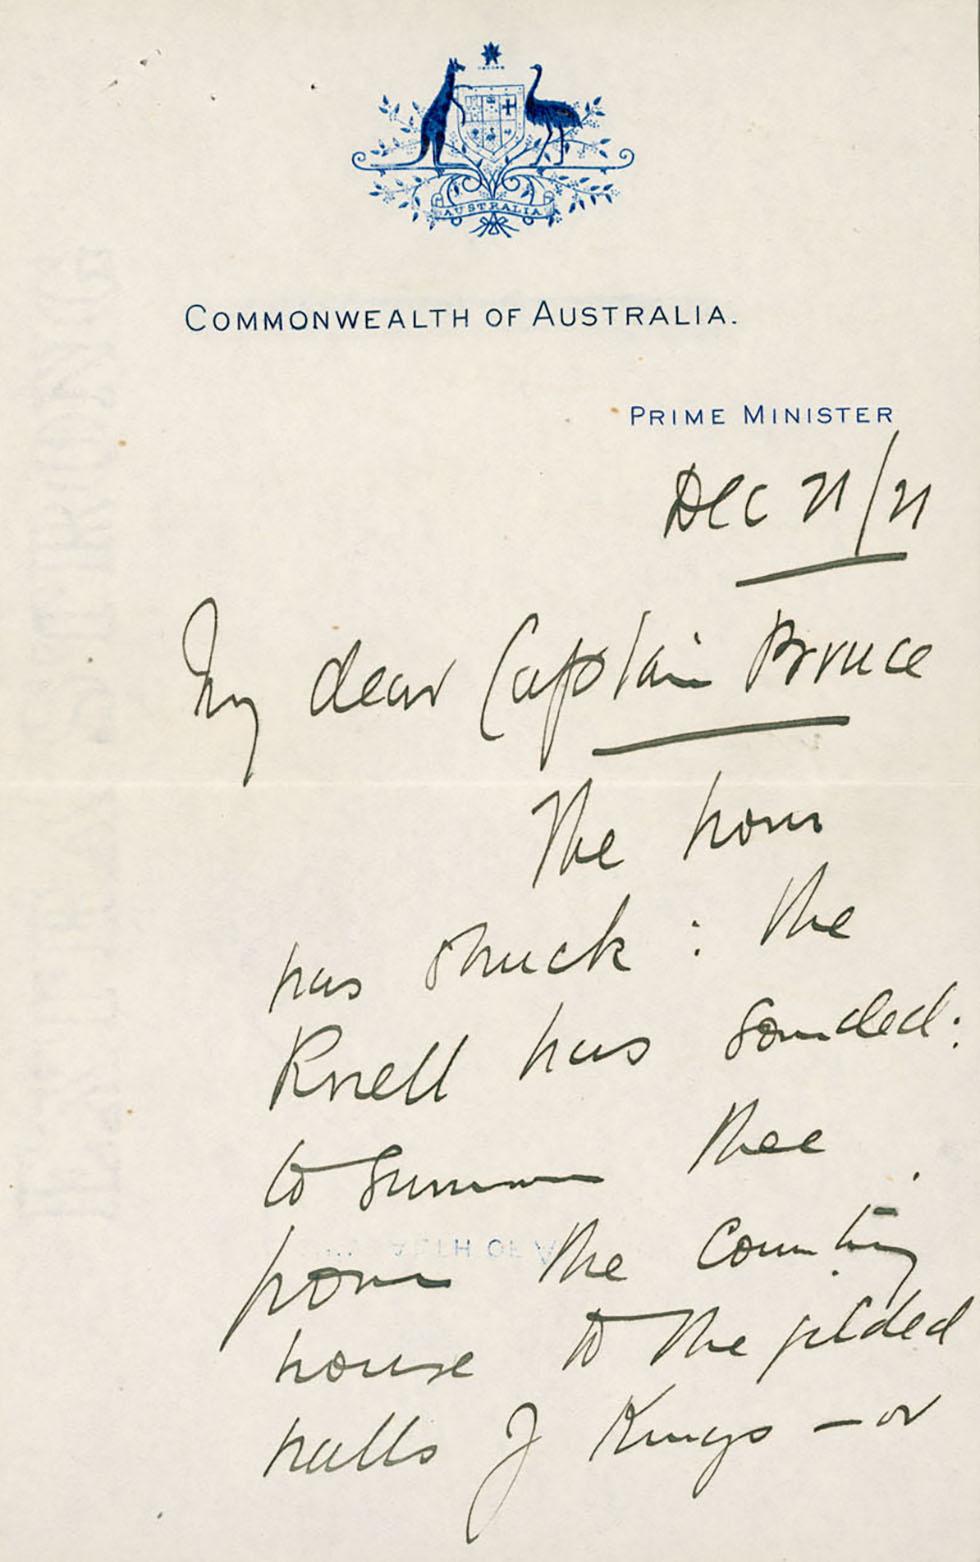 AUSTRALIA
COMMONWEALTH OF AUSTRALIA.
PRIME MINISTER
Dec 21/21
My dear Captain Bruce
The hour
has struck : the
Knell has sounded:
to summon thee
from the counting
house to the gilded
halls of Kings – or